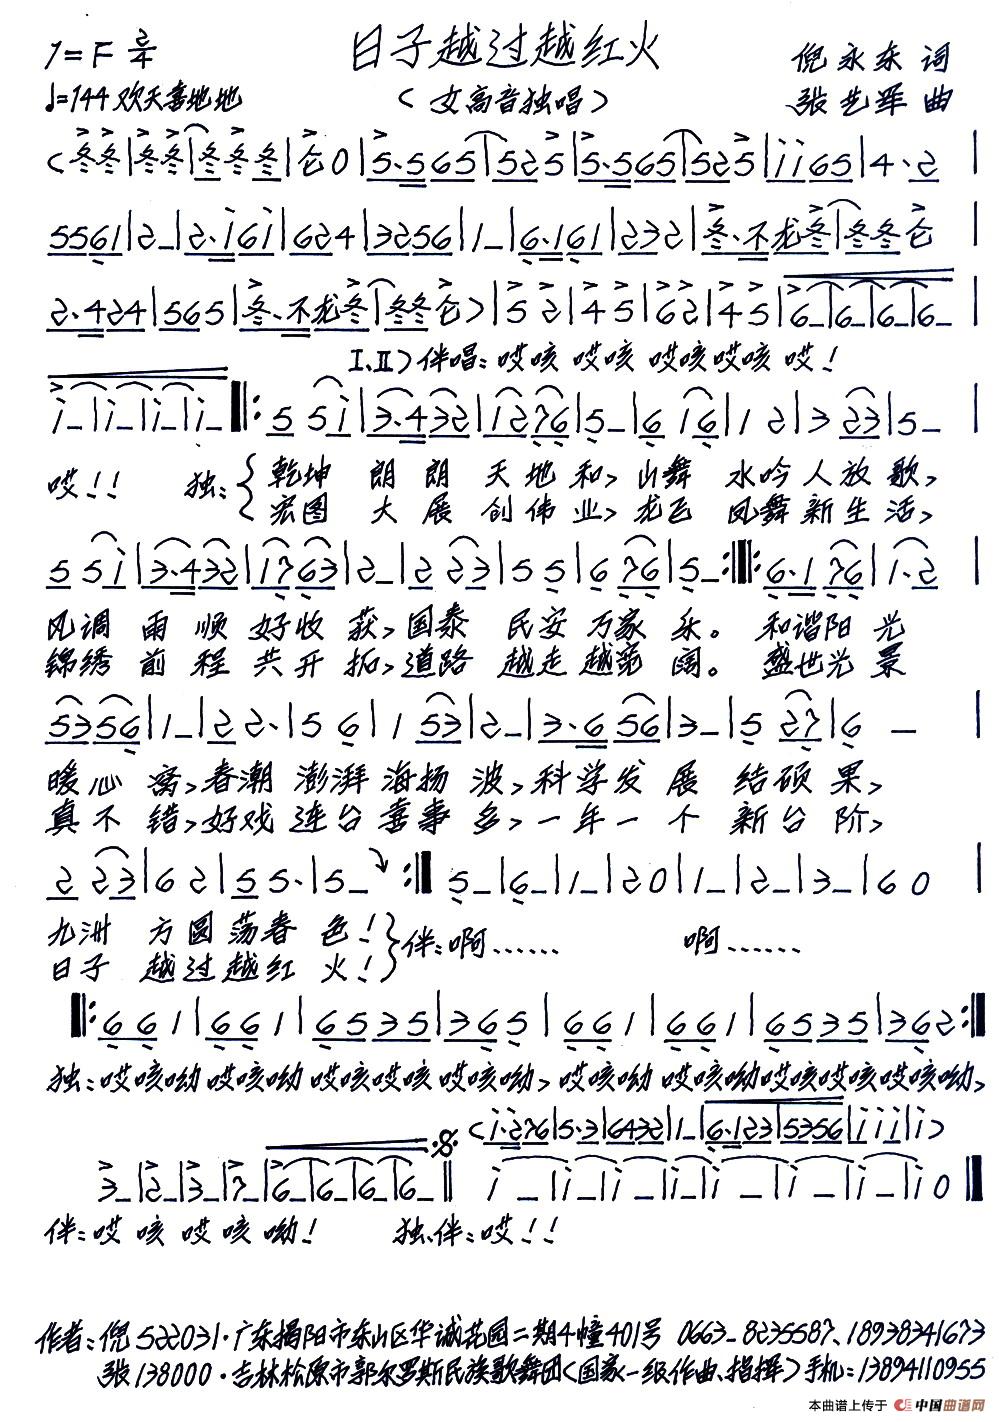 日子越过越红火
1=F 2/4
倪永东 词
♩=144 欢天喜地地
(女高音独唱)
张艺军 曲
(冬冬|冬冬|冬冬冬|仑0|5.565|525|5.565|525|i i 65|4.2|
5561|2-|2.i6i|624|3256|1-|6.161|232|冬.不龙冬|冬冬仑|
2.424|565|冬.不龙冬|冬冬仑)|52|45|62|45|6-|6-|6-|6-|
I、II)伴唱:哎咳 哎咳 哎咳哎咳 哎!
i-|i-|i-|i-‖:55i|3.432|1276|5-|616|12|323|5-|
哎!! 独:{乾坤 朗朗 天地和,山舞 水吟人放歌,
宏图 大展 创伟业,龙飞 凤舞新生活,
55i|3.432|1763|2-|223|55|676|5-:‖:6.176|1.2|
风调 雨顺 好收获,国泰 民安万家乐。 和谐阳光
锦绣 前程 共开拓,道路 越走越宽阔。 盛世光景
5356|1-|22.|56|153|2-|3.656|3-|527|6-|
暖心窝,春潮澎湃海扬波,科学发展 结硕果,
真不错,好戏连台喜事多,一年一个 新台阶,
223|62|55.|5-:‖5-|6-|1-|20|1-|2-|3-|60|
九洲 方圆荡春色!}伴:啊…… 啊……
日子 越过越红火!
‖:661|661|6535|365|661|661|6535|362:‖
独:哎咳呦哎咳呦 哎咳哎咳 哎咳呦,哎咳呦 哎咳呦哎咳哎咳哎咳呦,
(i.276|5.3|6432|1-|6.123|5356|iii|i)
3-|2-|3-|7-|6-|6-|6-|6-‖i-|i-|i-|i-|i-|i-|i-|i0‖
伴:哎咳哎咳呦! 独、伴:哎!!
作者:倪 522031·广东揭阳市东山区华诚花园二期4幢401号 0663-8235587、18938341673
张 138000·吉林松原市郭尔罗斯民族歌舞团(国家一级作曲、指挥)手机:13894110955
本曲谱上传于 中国曲谱网